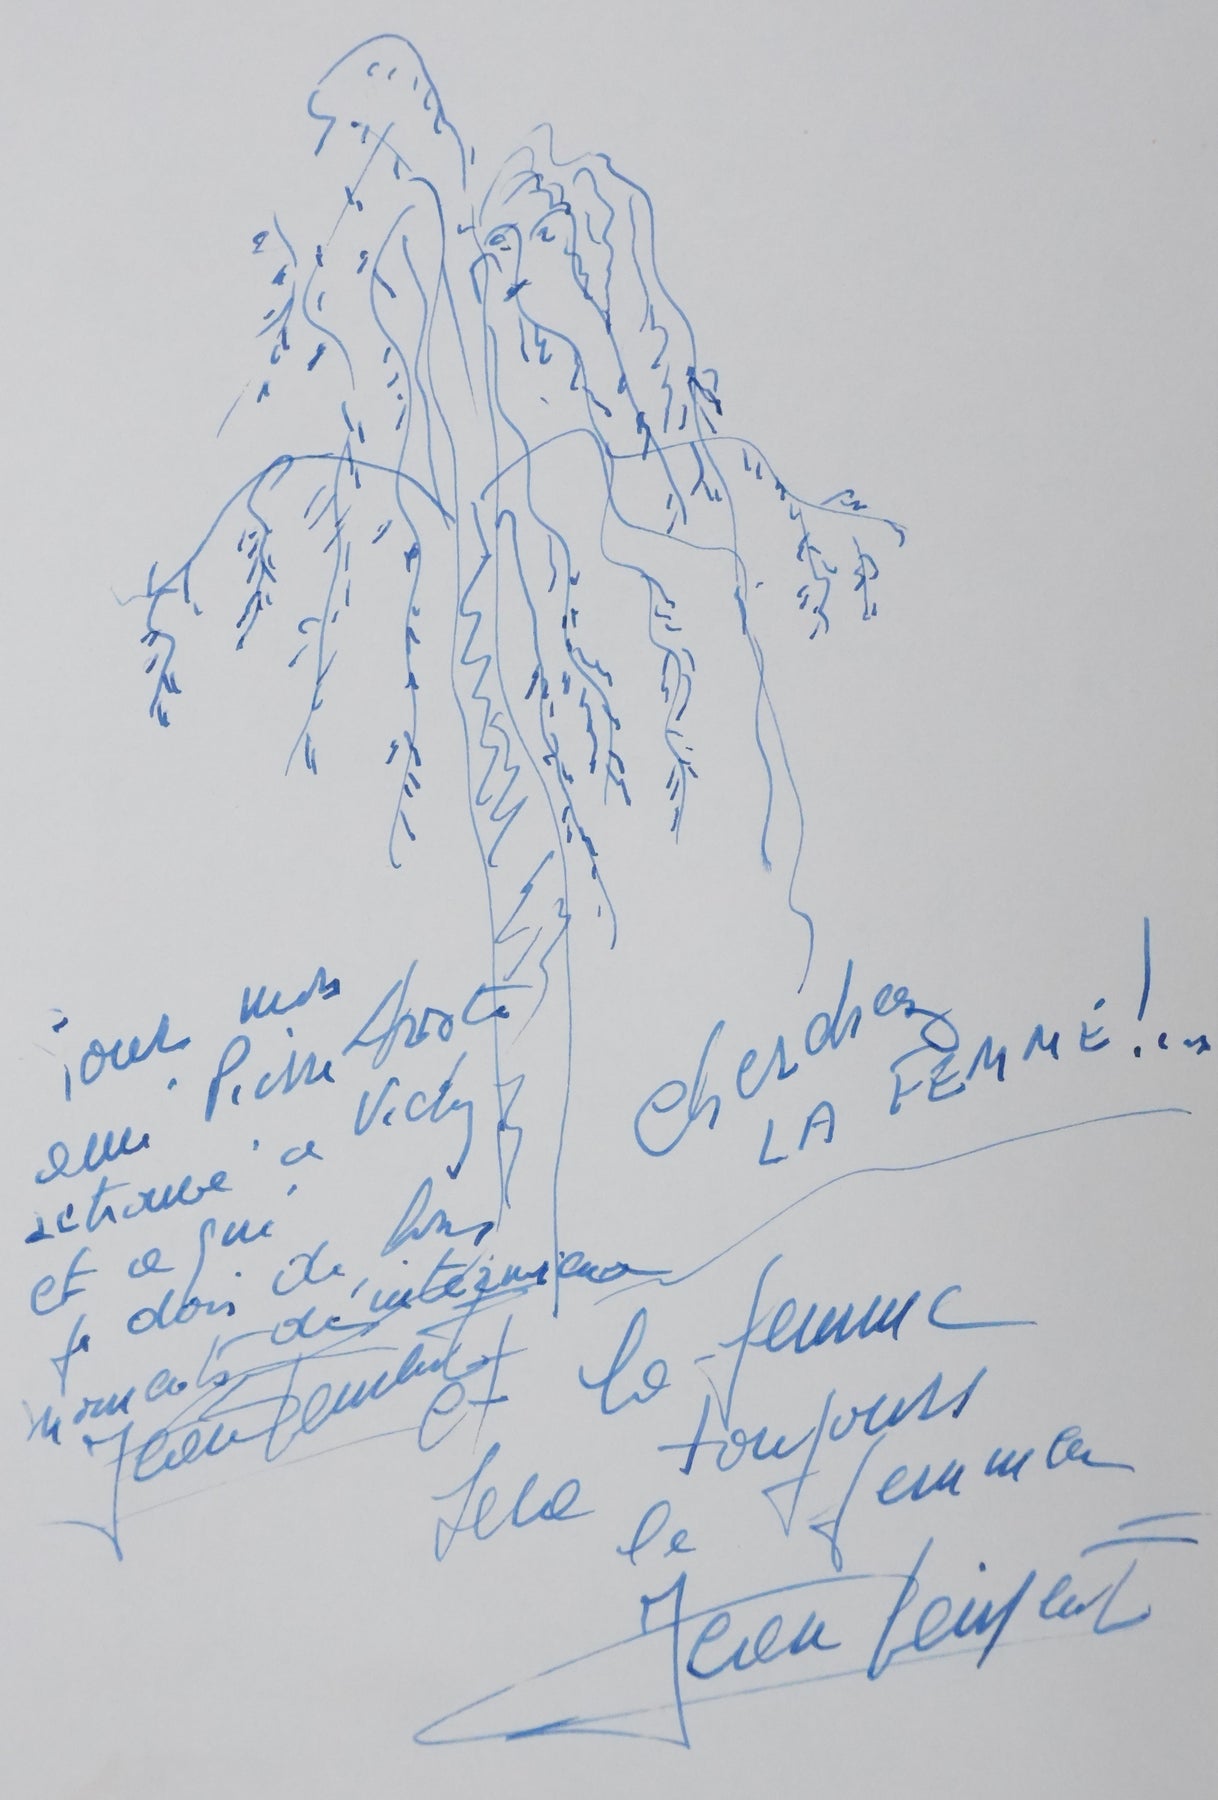 Pour mon
ami Pierre
retrouvé à Vichy
et à qui
je dois de bons
moments
Jean
Cherchez
LA FEMME!...
et la femme
sera toujours
la femme
Jean